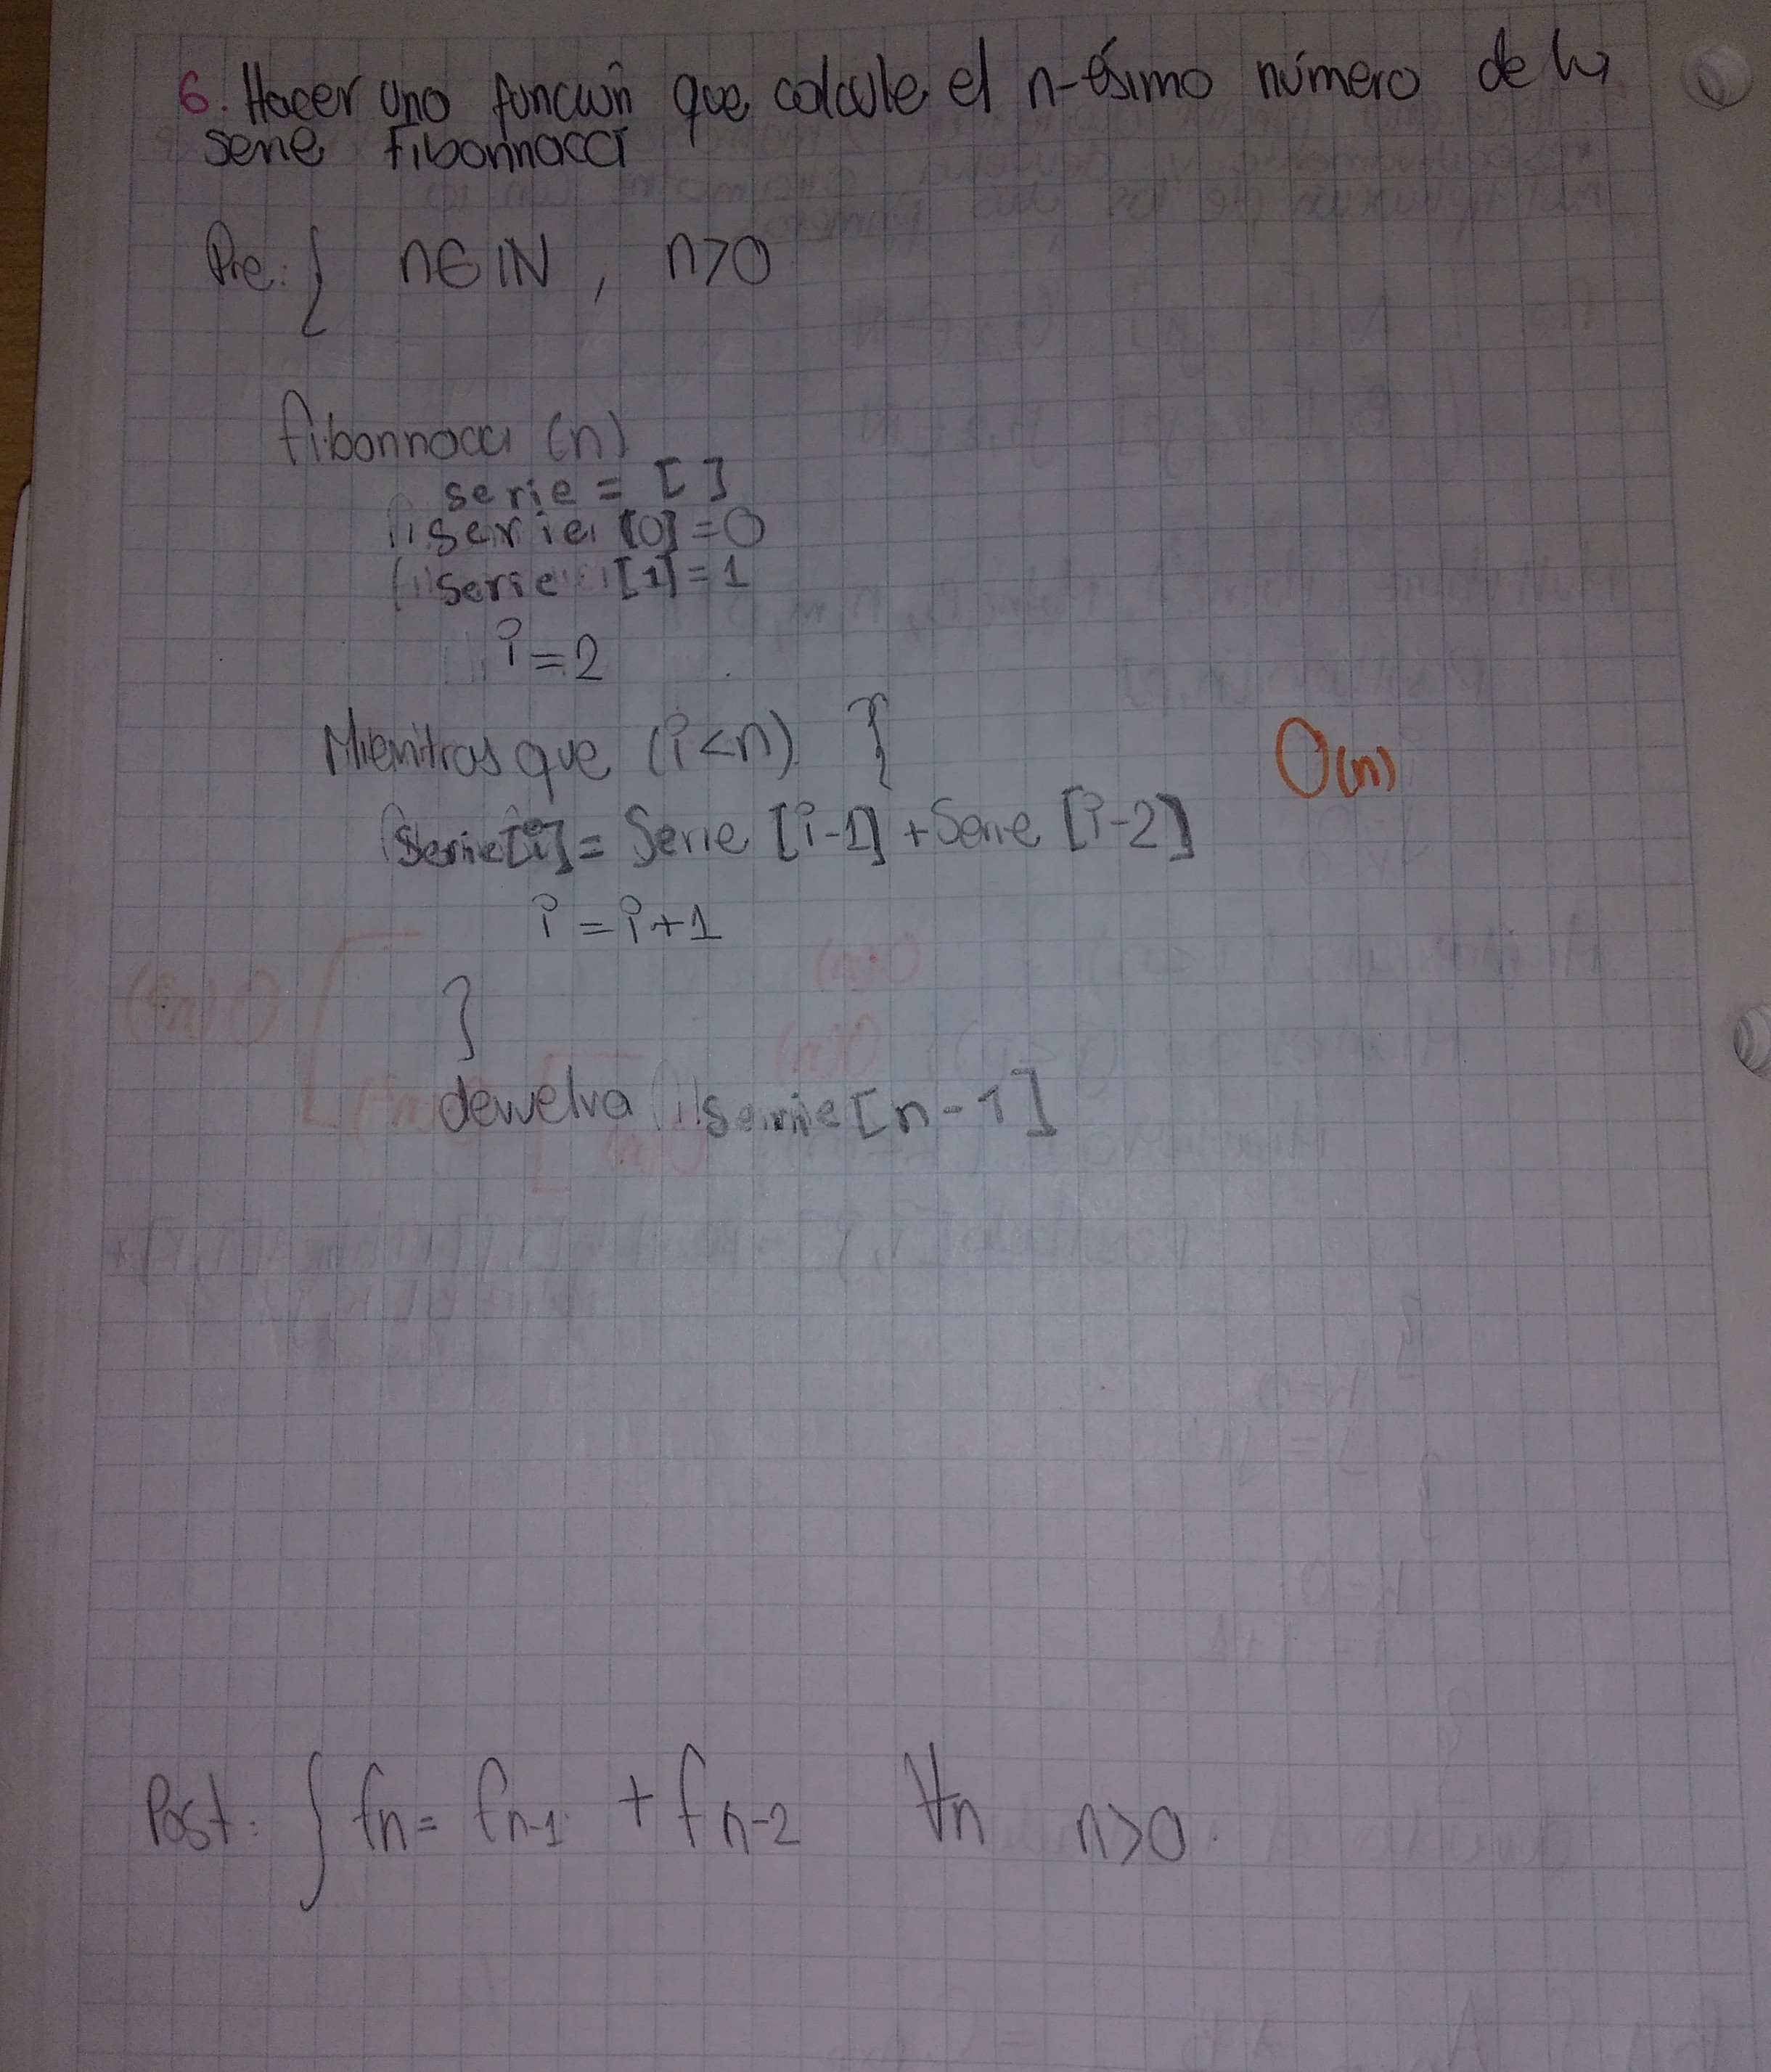 6. Hacer una función que calcule el n-ésimo número de la
serie fibonnacci
Pre: { n∈ℕ , n>0
fibonnacci (n)
serie = [ ]
serie [0] = 0
serie [1] = 1
i = 2
Mientras que (i<n) {
Serie[i] = Serie [i-1] + Serie [i-2]
O(n)
i = i+1
}
devuelva serie[n-1]
Post: { fn = fn-1 + fn-2 ∀n n>0